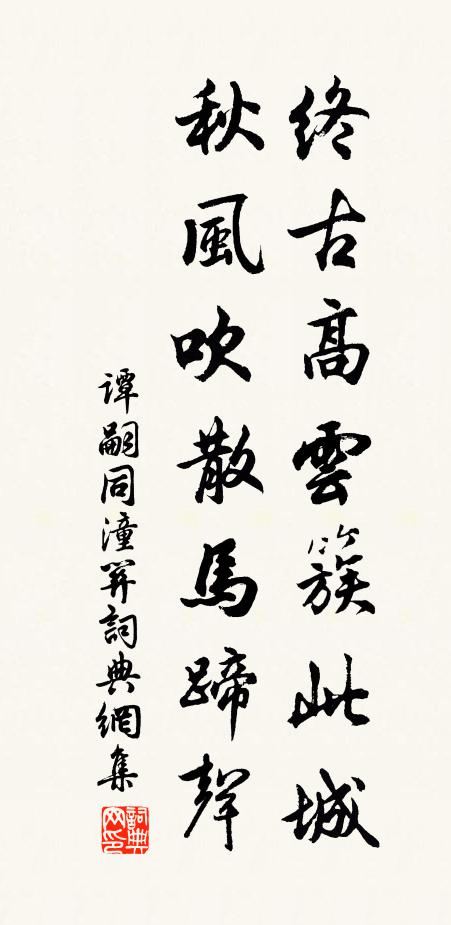 終古高雲簇此城
秋風吹散馬蹄聲
譚嗣同潼關詞典網集
詞典網印